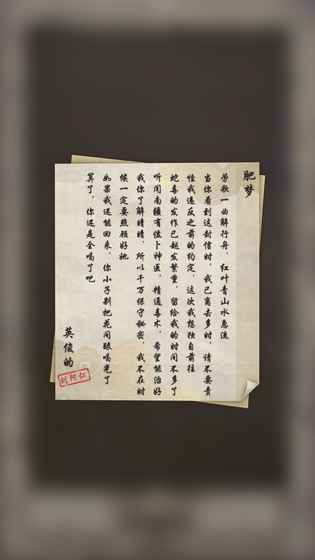 肥梦
劳歌一曲解行舟，红叶青山水急流
当你看到这封信时，我已离去多时，请不要责
怪我违反之前的约定，这次我想独自前往
蛇毒的发作已越发繁重，留给我的时间不多了
听闻南疆有位卜神医，精通毒术，希望能治好
我你了解晴晴，所以千万保守秘密，我不在时
候一定要照顾好她
如果我还能回来，你小子别把花间眼喝光了
算了，你还是全喝了吧
英俊的